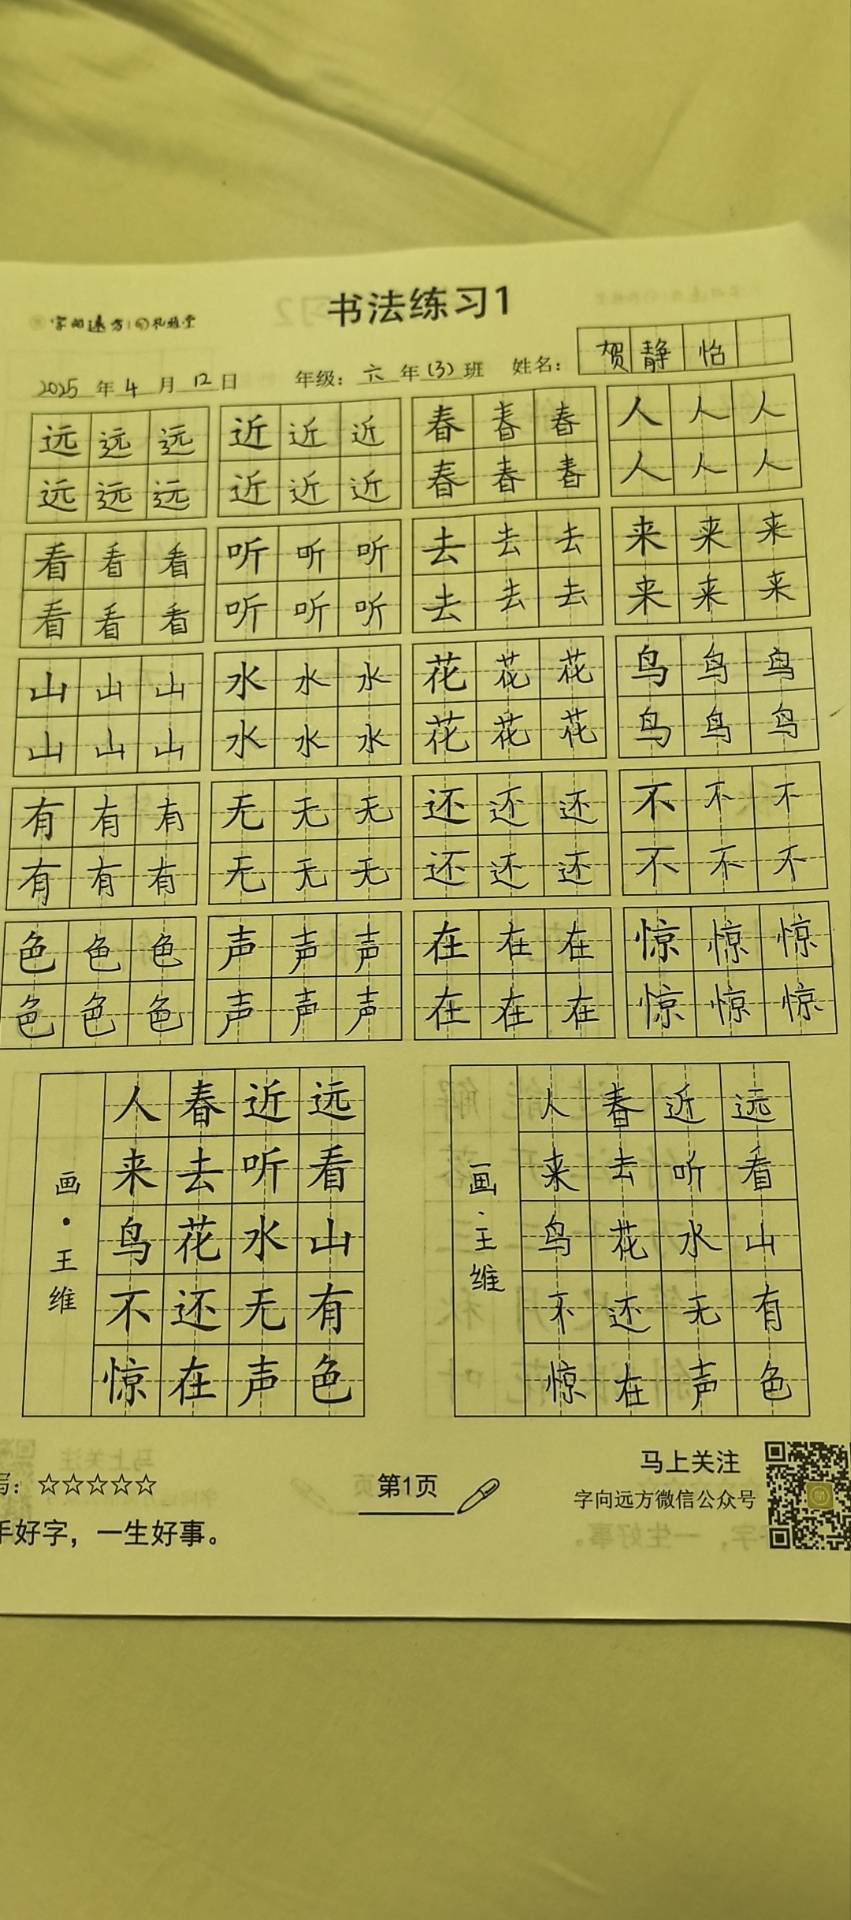 字向远方
书法练习1
2025年4月12日 年级:六年(3)班 姓名:贺静怡
远远远 近近近 春春春 人人人
远远远 近近近 春春春 人人人
看看看 听听听 去去去 来来来
看看看 听听听 去去去 来来来
山山山 水水水 花花花 鸟鸟鸟
山山山 水水水 花花花 鸟鸟鸟
有有有 无无无 还还还 不不不
有有有 无无无 还还还 不不不
色色色 声声声 在在在 惊惊惊
色色色 声声声 在在在 惊惊惊
远看山有色
近听水无声
春去花还在
人来鸟不惊
画·王维
远看山有色
近听水无声
春去花还在
人来鸟不惊
画·王维
写:☆☆☆☆☆
手好字，一生好事。
第1页
马上关注
字向远方微信公众号